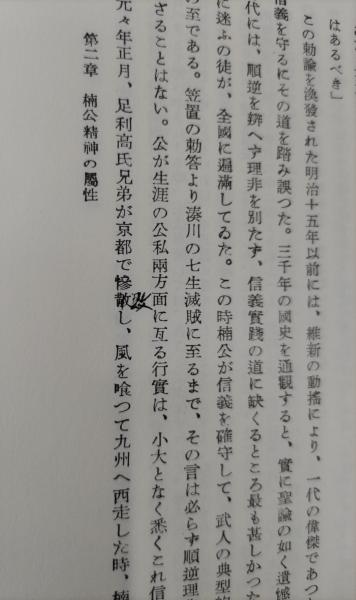 はあるべき」
この勅諭を渙發された明治十五年以前には、維新の動搖により、一代の偉傑であつ
信義を守るにその道を踏み誤つた。三千年の國史を通觀すると、實に聖諭の如く遺憾
代には、順逆を辨へず理非を別たず、信義實踐の道に缺くるところ最も甚しかつた
に迷ふの徒が、全國に遍滿してゐた。この時楠公が信義を確守して、武人の典型的
の至である。笠置の勅答より湊川の七生滅賊に至るまで、その言は必らず順逆理
さることはない。公が生涯の公私兩方面に亙る行實は、小大となく悉くこれ信
元々年正月、足利高氏兄弟が京都で慘散し、風を喰つて九州へ西走した時、楠
敗
第二章 楠公精神の屬性